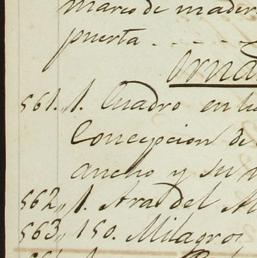 marco de mader
puerta
Orna
561. 1. Cuadro en
Concepcion de
ancho y su
562,, 1. Ara del
563,, 150. Milagros